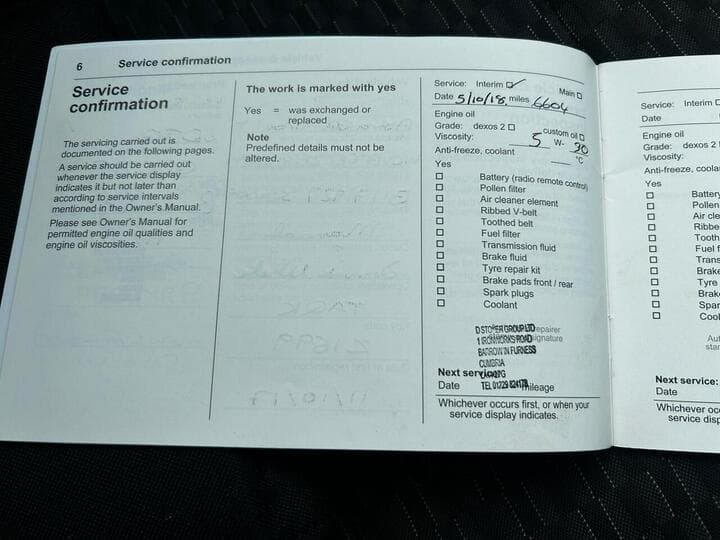 6 Service confirmation
Service
confirmation
The servicing carried out is
documented on the following pages.
A service should be carried out
whenever the service display
indicates it but not later than
according to service intervals
mentioned in the Owner's Manual.
Please see Owner's Manual for
permitted engine oil qualities and
engine oil viscosities.
The work is marked with yes
Yes = was exchanged or
replaced
Note
Predefined details must not be
altered.
Service: Interim ☑ Main ☐
Date 5/10/18 miles 6604
Engine oil
Grade: dexos 2 ☐ custom oil ☐
Viscosity: 5 W- 30
Anti-freeze, coolant °C
Yes
☐ Battery (radio remote control)
☐ Pollen filter
☐ Air cleaner element
☐ Ribbed V-belt
☐ Toothed belt
☐ Fuel filter
☐ Transmission fluid
☐ Brake fluid
☐ Tyre repair kit
☐ Brake pads front / rear
☐ Spark plugs
☐ Coolant
GROUP LTD repairer
1 IRONWORKS ROAD signature
BARROW IN FURNESS
CUMBRIA
Next service:
Date TEL 01229 mileage
Whichever occurs first, or when your
service display indicates.
Service: Interim
Date
Engine oil
Grade: dexos 2
Viscosity:
Anti-freeze, coola
Yes
☐ Battery
☐ Pollen
☐ Air cle
☐ Ribbe
☐ Tooth
☐ Fuel f
☐ Trans
☐ Brake
☐ Tyre
☐ Brak
☐ Spar
☐ Cool
Aut
star
Next service:
Date
Whichever oc
service disp